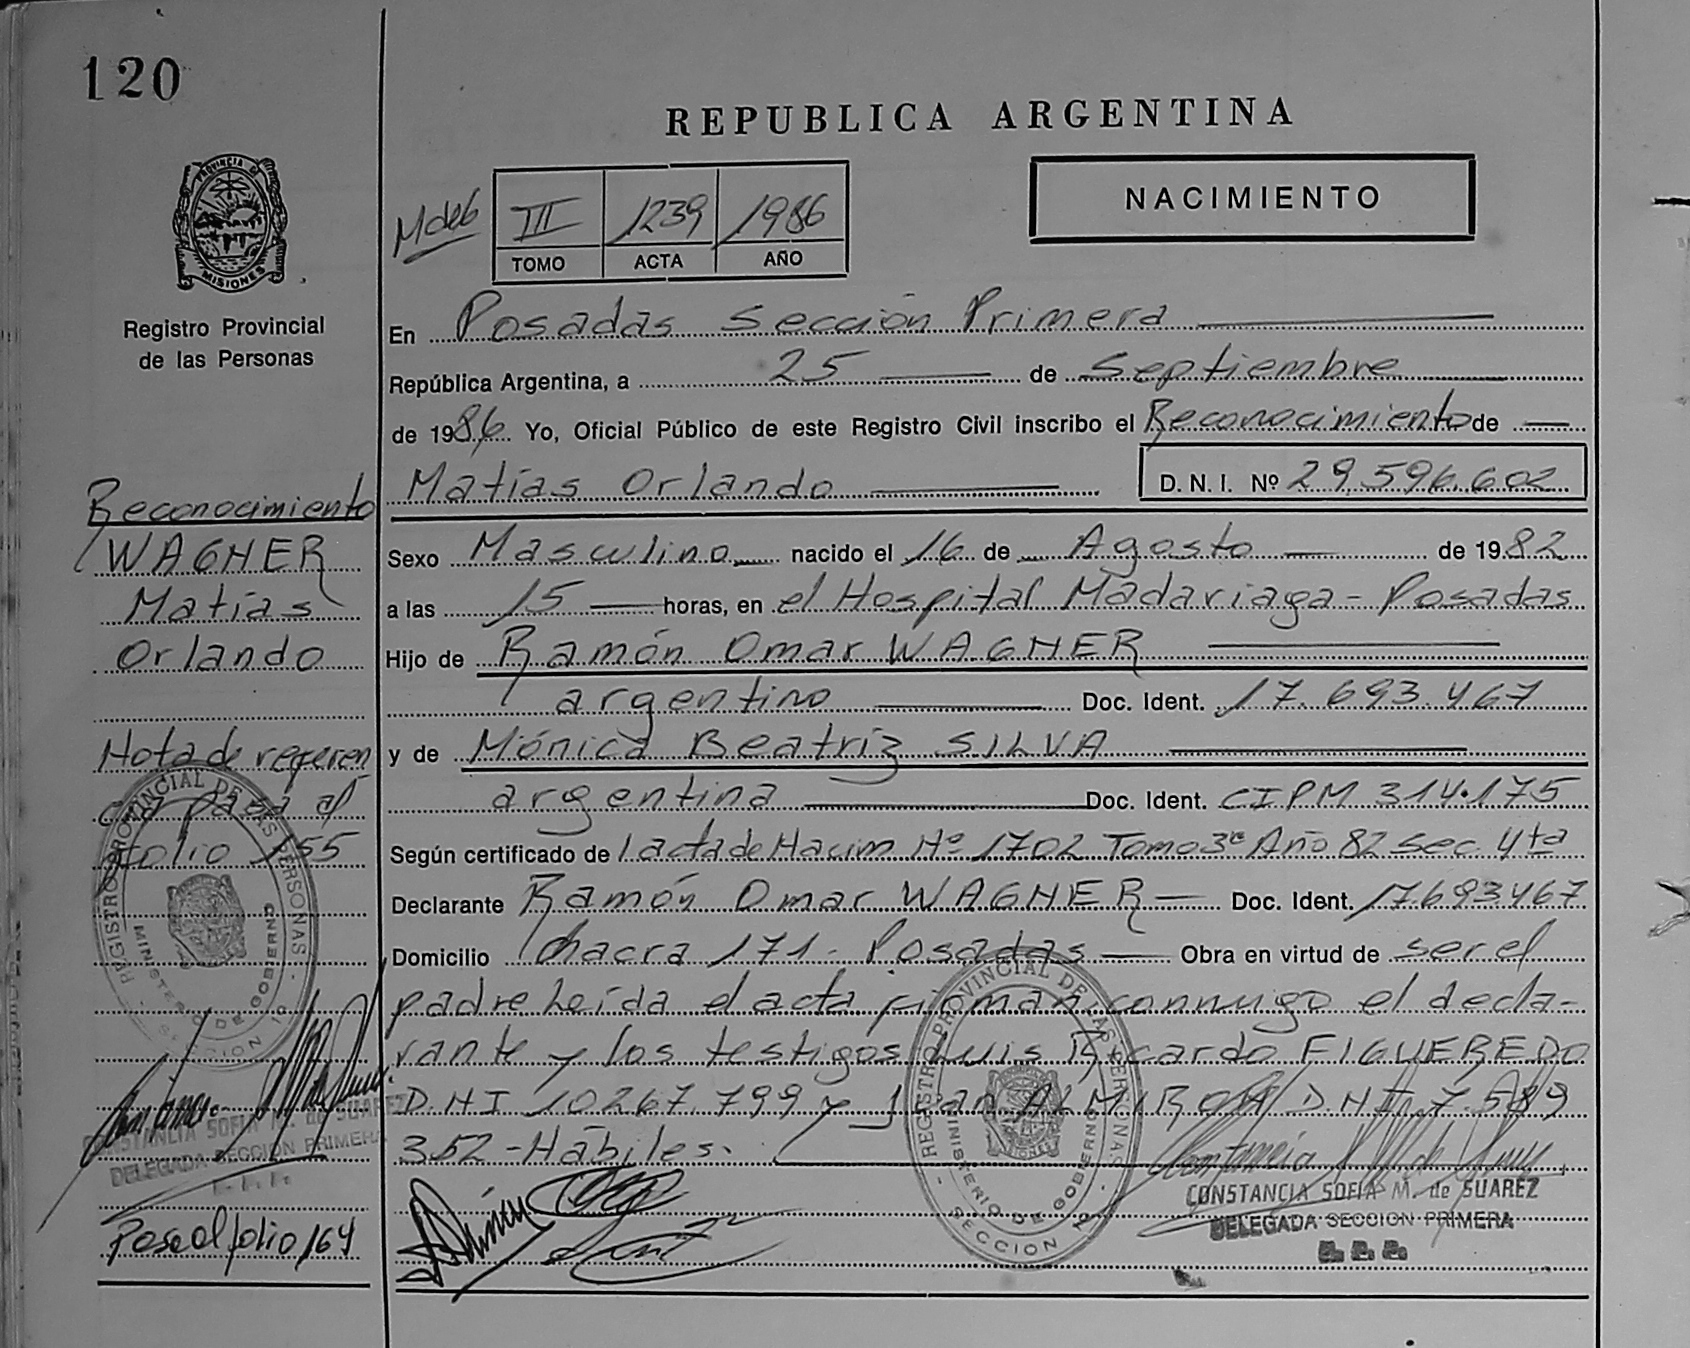 120
REPUBLICA ARGENTINA
PROVINCIA DE
MISIONES
Registro Provincial
de las Personas
III 1239 1986
TOMO ACTA AÑO
NACIMIENTO
En Posadas Sección Primera
República Argentina, a 25 de Septiembre
de 1986 Yo, Oficial Público de este Registro Civil inscribo el Reconocimiento de
Matías Orlando D.N.I. Nº 29.596.602
Sexo Masculino nacido el 16 de Agosto de 1982
a las 15 horas, en el Hospital Madariaga - Posadas
Hijo de Ramón Omar WAGNER
argentino Doc. Ident. 17.693.467
y de Mónica Beatriz SILVA
argentina Doc. Ident. CIPM 314.175
Según certificado de 1 acta de Nacim Nº 1702 Tomo 3º Año 82 Sec. 4ta
Declarante Ramón Omar WAGNER Doc. Ident. 17693467
Domicilio Chacra 171 - Posadas Obra en virtud de ser el
padre leída el acta firman conmigo el decla-
rante y los testigos Luis Ricardo FIGUEREDO
D.N.I 10267.799 y Juan ALMIRON D.N.I. 7.589
352 - Hábiles.
CONSTANCIA SOFIA M. de SUAREZ
DELEGADA SECCION PRIMERA
R. P. P.
REGISTRO PROVINCIAL DE LAS PERSONAS
MINISTERIO DE GOBIERNO
SECCION 1º
Reconocimiento
WAGNER
Matías
Orlando
Nota de referen
cia pasa al
folio 155
REGISTRO PROVINCIAL DE LAS PERSONAS
MINISTERIO DE GOBIERNO
SECCION 1º
CONSTANCIA SOFIA M. de SUAREZ
DELEGADA SECCION PRIMERA
Pase al folio 164